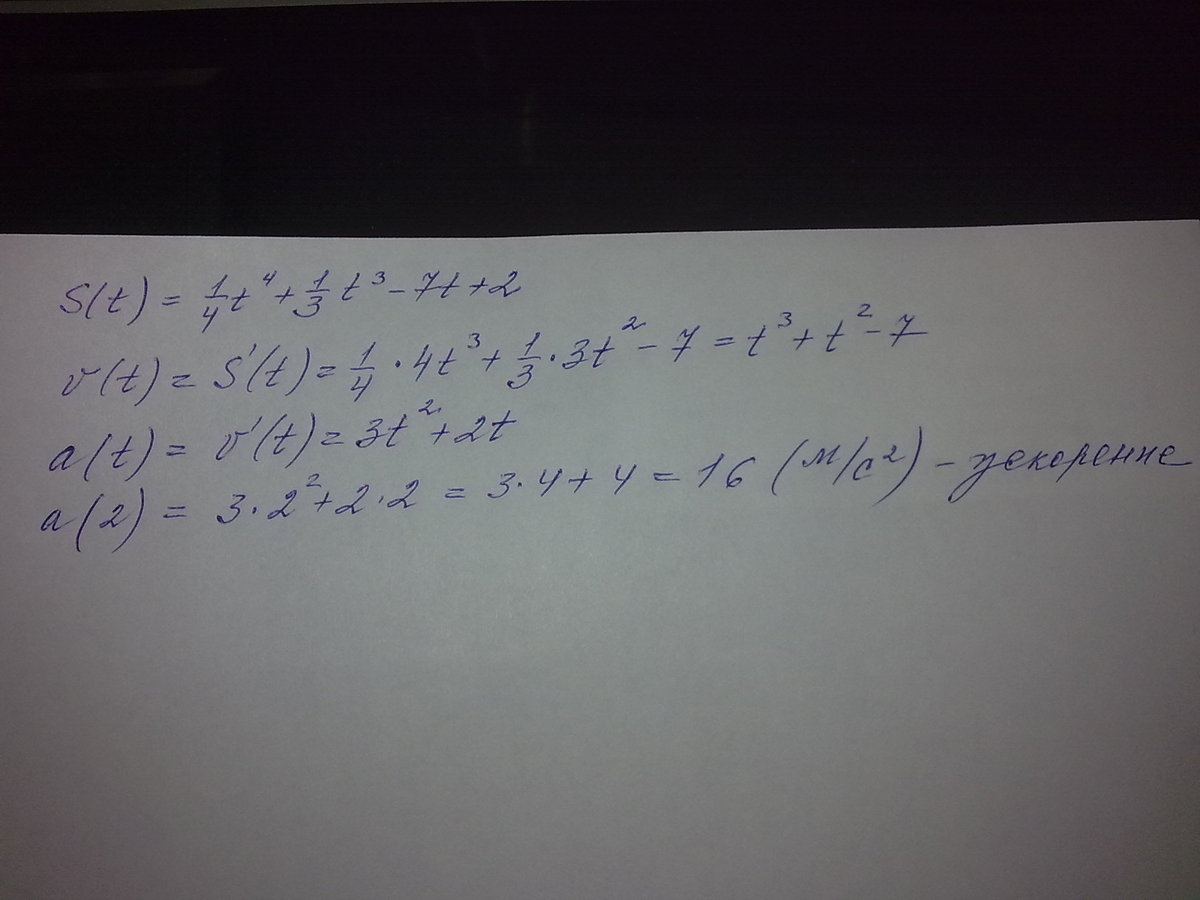 S(t) = 1/4 t⁴ + 1/3 t³ - 7t + 2
v(t) = S'(t) = 1/4 · 4t³ + 1/3 · 3t² - 7 = t³ + t² - 7
a(t) = v'(t) = 3t² + 2t
a(2) = 3·2² + 2·2 = 3·4 + 4 = 16 (м/с²) - ускорение